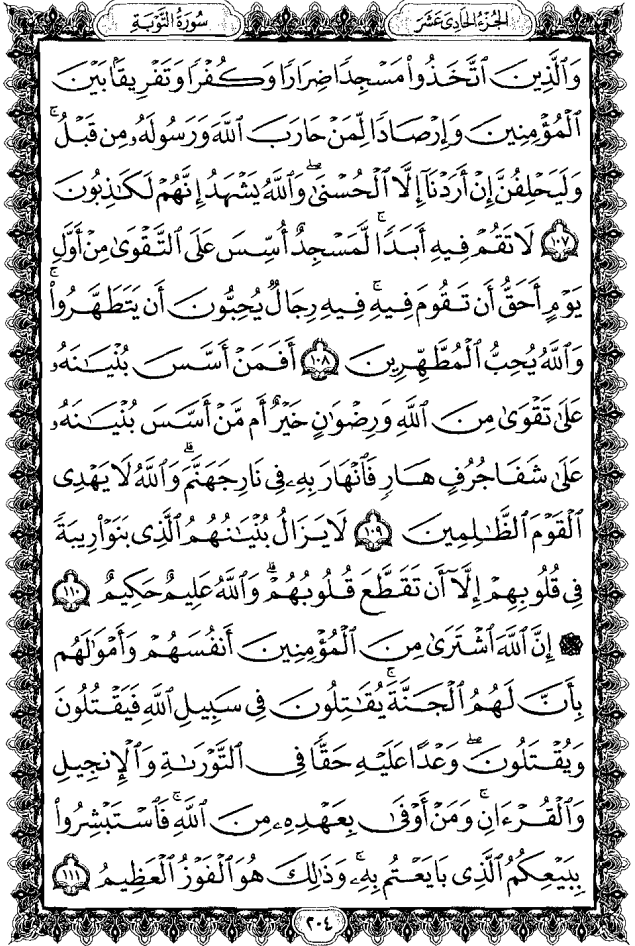 سُورَةُ التَّوْبَةِ
الجُزْءُ الحَادِىَ عَشَرَ
وَٱلَّذِينَ ٱتَّخَذُوا۟ مَسْجِدًا ضِرَارًا وَكُفْرًا وَتَفْرِيقًۢا بَيْنَ
ٱلْمُؤْمِنِينَ وَإِرْصَادًا لِّمَنْ حَارَبَ ٱللَّهَ وَرَسُولَهُۥ مِن قَبْلُ ۚ
وَلَيَحْلِفُنَّ إِنْ أَرَدْنَآ إِلَّا ٱلْحُسْنَىٰ ۖ وَٱللَّهُ يَشْهَدُ إِنَّهُمْ لَكَـٰذِبُونَ
١٠٧ لَا تَقُمْ فِيهِ أَبَدًا ۚ لَّمَسْجِدٌ أُسِّسَ عَلَى ٱلتَّقْوَىٰ مِنْ أَوَّلِ
يَوْمٍ أَحَقُّ أَن تَقُومَ فِيهِ ۚ فِيهِ رِجَالٌ يُحِبُّونَ أَن يَتَطَهَّرُوا۟ ۚ
وَٱللَّهُ يُحِبُّ ٱلْمُطَّهِّرِينَ ١٠٨ أَفَمَنْ أَسَّسَ بُنْيَـٰنَهُۥ
عَلَىٰ تَقْوَىٰ مِنَ ٱللَّهِ وَرِضْوَٰنٍ خَيْرٌ أَم مَّنْ أَسَّسَ بُنْيَـٰنَهُۥ
عَلَىٰ شَفَا جُرُفٍ هَارٍ فَٱنْهَارَ بِهِۦ فِى نَارِ جَهَنَّمَ ۗ وَٱللَّهُ لَا يَهْدِى
ٱلْقَوْمَ ٱلظَّـٰلِمِينَ ١٠٩ لَا يَزَالُ بُنْيَـٰنُهُمُ ٱلَّذِى بَنَوْا۟ رِيبَةً
فِى قُلُوبِهِمْ إِلَّآ أَن تَقَطَّعَ قُلُوبُهُمْ ۗ وَٱللَّهُ عَلِيمٌ حَكِيمٌ ١١٠
۞ إِنَّ ٱللَّهَ ٱشْتَرَىٰ مِنَ ٱلْمُؤْمِنِينَ أَنفُسَهُمْ وَأَمْوَٰلَهُم
بِأَنَّ لَهُمُ ٱلْجَنَّةَ ۚ يُقَـٰتِلُونَ فِى سَبِيلِ ٱللَّهِ فَيَقْتُلُونَ
وَيُقْتَلُونَ ۖ وَعْدًا عَلَيْهِ حَقًّا فِى ٱلتَّوْرَىٰةِ وَٱلْإِنجِيلِ
وَٱلْقُرْءَانِ ۚ وَمَنْ أَوْفَىٰ بِعَهْدِهِۦ مِنَ ٱللَّهِ ۚ فَٱسْتَبْشِرُوا۟
بِبَيْعِكُمُ ٱلَّذِى بَايَعْتُم بِهِۦ ۚ وَذَٰلِكَ هُوَ ٱلْفَوْزُ ٱلْعَظِيمُ ١١١
٢٠٤